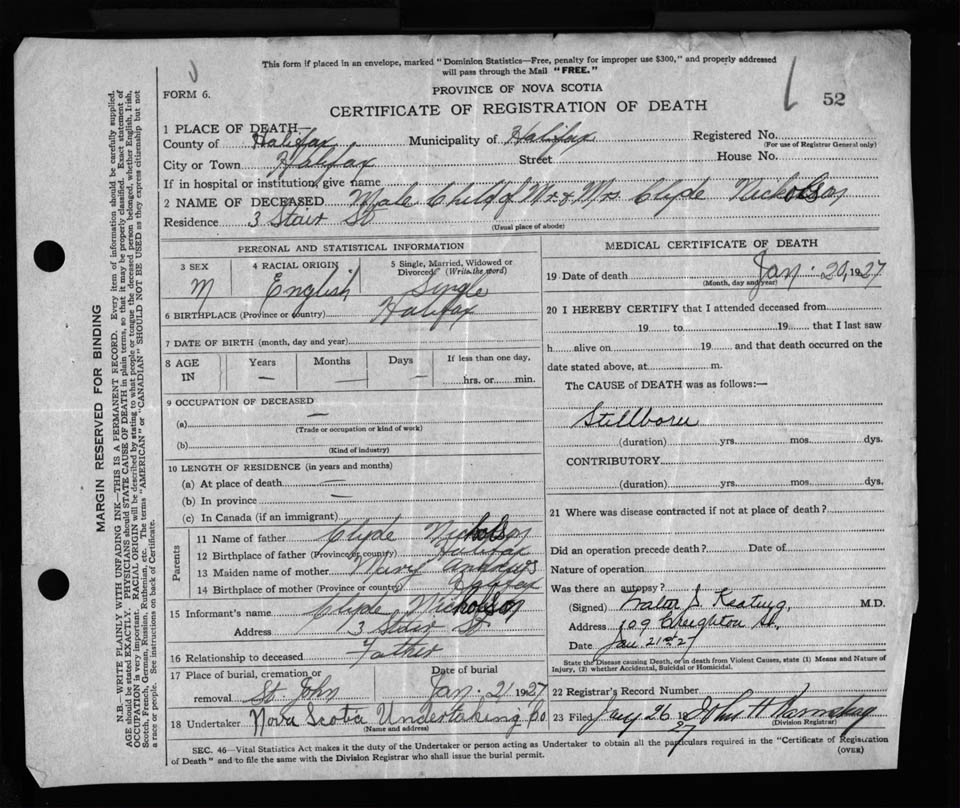 This form if placed in an envelope, marked "Dominion Statistics—Free, penalty for improper use $300," and properly addressed
will pass through the Mail "FREE."
FORM 6.
PROVINCE OF NOVA SCOTIA
CERTIFICATE OF REGISTRATION OF DEATH
52
1 PLACE OF DEATH—
County of Halifax Municipality of Halifax Registered No.
(For use of Registrar General only)
City or Town Halifax Street House No.
If in hospital or institution, give name
2 NAME OF DECEASED Male Child of Mr. & Mrs Clyde Nicholson
Residence 3 Stair St
(Usual place of abode)
PERSONAL AND STATISTICAL INFORMATION
3 SEX 4 RACIAL ORIGIN 5 Single, Married, Widowed or
Divorced? (Write the word)
M English Single
6 BIRTHPLACE (Province or country) Halifax
7 DATE OF BIRTH (month, day and year)
8 AGE Years Months Days If less than one day,
IN — — — hrs. or min.
9 OCCUPATION OF DECEASED
(a) —
(Trade or occupation or kind of work)
(b)
(Kind of industry)
10 LENGTH OF RESIDENCE (in years and months)
(a) At place of death —
(b) In province —
(c) In Canada (if an immigrant)
Parents
11 Name of father Clyde Nicholson
12 Birthplace of father (Province or country) Halifax
13 Maiden name of mother Mary
14 Birthplace of mother (Province or country) Halifax
15 Informant's name Clyde Nicholson
Address 3 Stair St
16 Relationship to deceased Father
17 Place of burial, cremation or Date of burial
removal St John Jan. 21 1927
18 Undertaker Nova Scotia Undertaking Co
(Name and address)
MEDICAL CERTIFICATE OF DEATH
19 Date of death Jan 20, 1927
(Month, day and year)
20 I HEREBY CERTIFY that I attended deceased from
19 to 19 that I last saw
h alive on 19 and that death occurred on the
date stated above, at m.
The CAUSE of DEATH was as follows:—
Stillborn
(duration) yrs. mos. dys.
CONTRIBUTORY
(duration) yrs. mos. dys.
21 Where was disease contracted if not at place of death?
Did an operation precede death? Date of
Nature of operation
Was there an autopsy?
(Signed) Keating, M.D.
Address 109 Creighton St.
Date Jan 21st 27
State the Disease causing Death, or in death from Violent Causes, state (1) Means and Nature of
Injury, (2) whether Accidental, Suicidal or Homicidal.
22 Registrar's Record Number
23 Filed Jany 26 1927 John H
(Division Registrar)
SEC. 46—Vital Statistics Act makes it the duty of the Undertaker or person acting as Undertaker to obtain all the particulars required in the "Certificate of Registration
of Death" and to file the same with the Division Registrar who shall issue the burial permit.
(OVER)
MARGIN RESERVED FOR BINDING
N.B.—WRITE PLAINLY WITH UNFADING INK—THIS IS A PERMANENT RECORD. Every item of information should be carefully supplied.
AGE should be stated EXACTLY. PHYSICIANS should STATE CAUSE OF DEATH in plain terms, so that it may be properly classified. Exact statement of
OCCUPATION is very important. RACIAL ORIGIN will be described by stating to what people or tongue the deceased person belonged, whether English, Irish,
Scotch, French, German, Russian, Ruthenian, etc. The terms "AMERICAN" or "CANADIAN" SHOULD NOT BE USED as they express citizenship but not
a race or people. See instructions on back of Certificate.